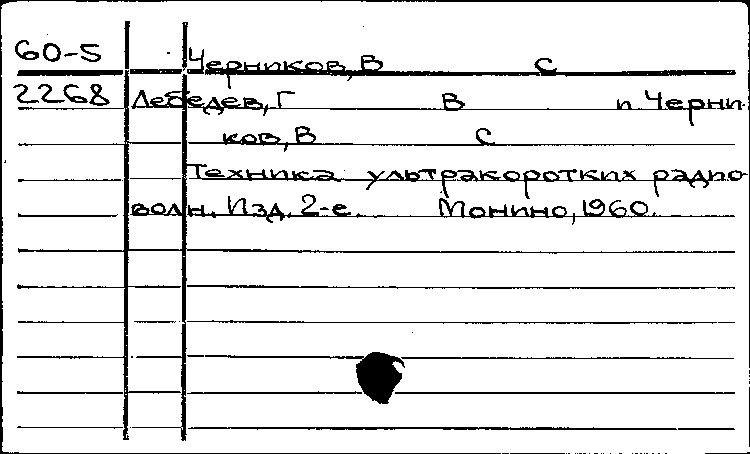 60-5 Черников, В С
2268 Лебедев, Г В п Черни
ков, В С
Техника ультракоротких радио
волн. Изд. 2-е. Монино, 1960.